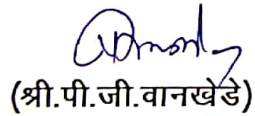 (श्री.पी.जी.वानखेडे)